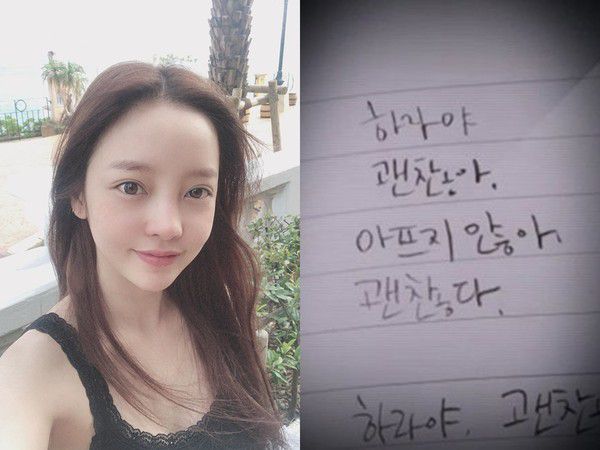 하라야
괜찮아.
아프지 않아.
괜찮다.
하라야. 괜찮